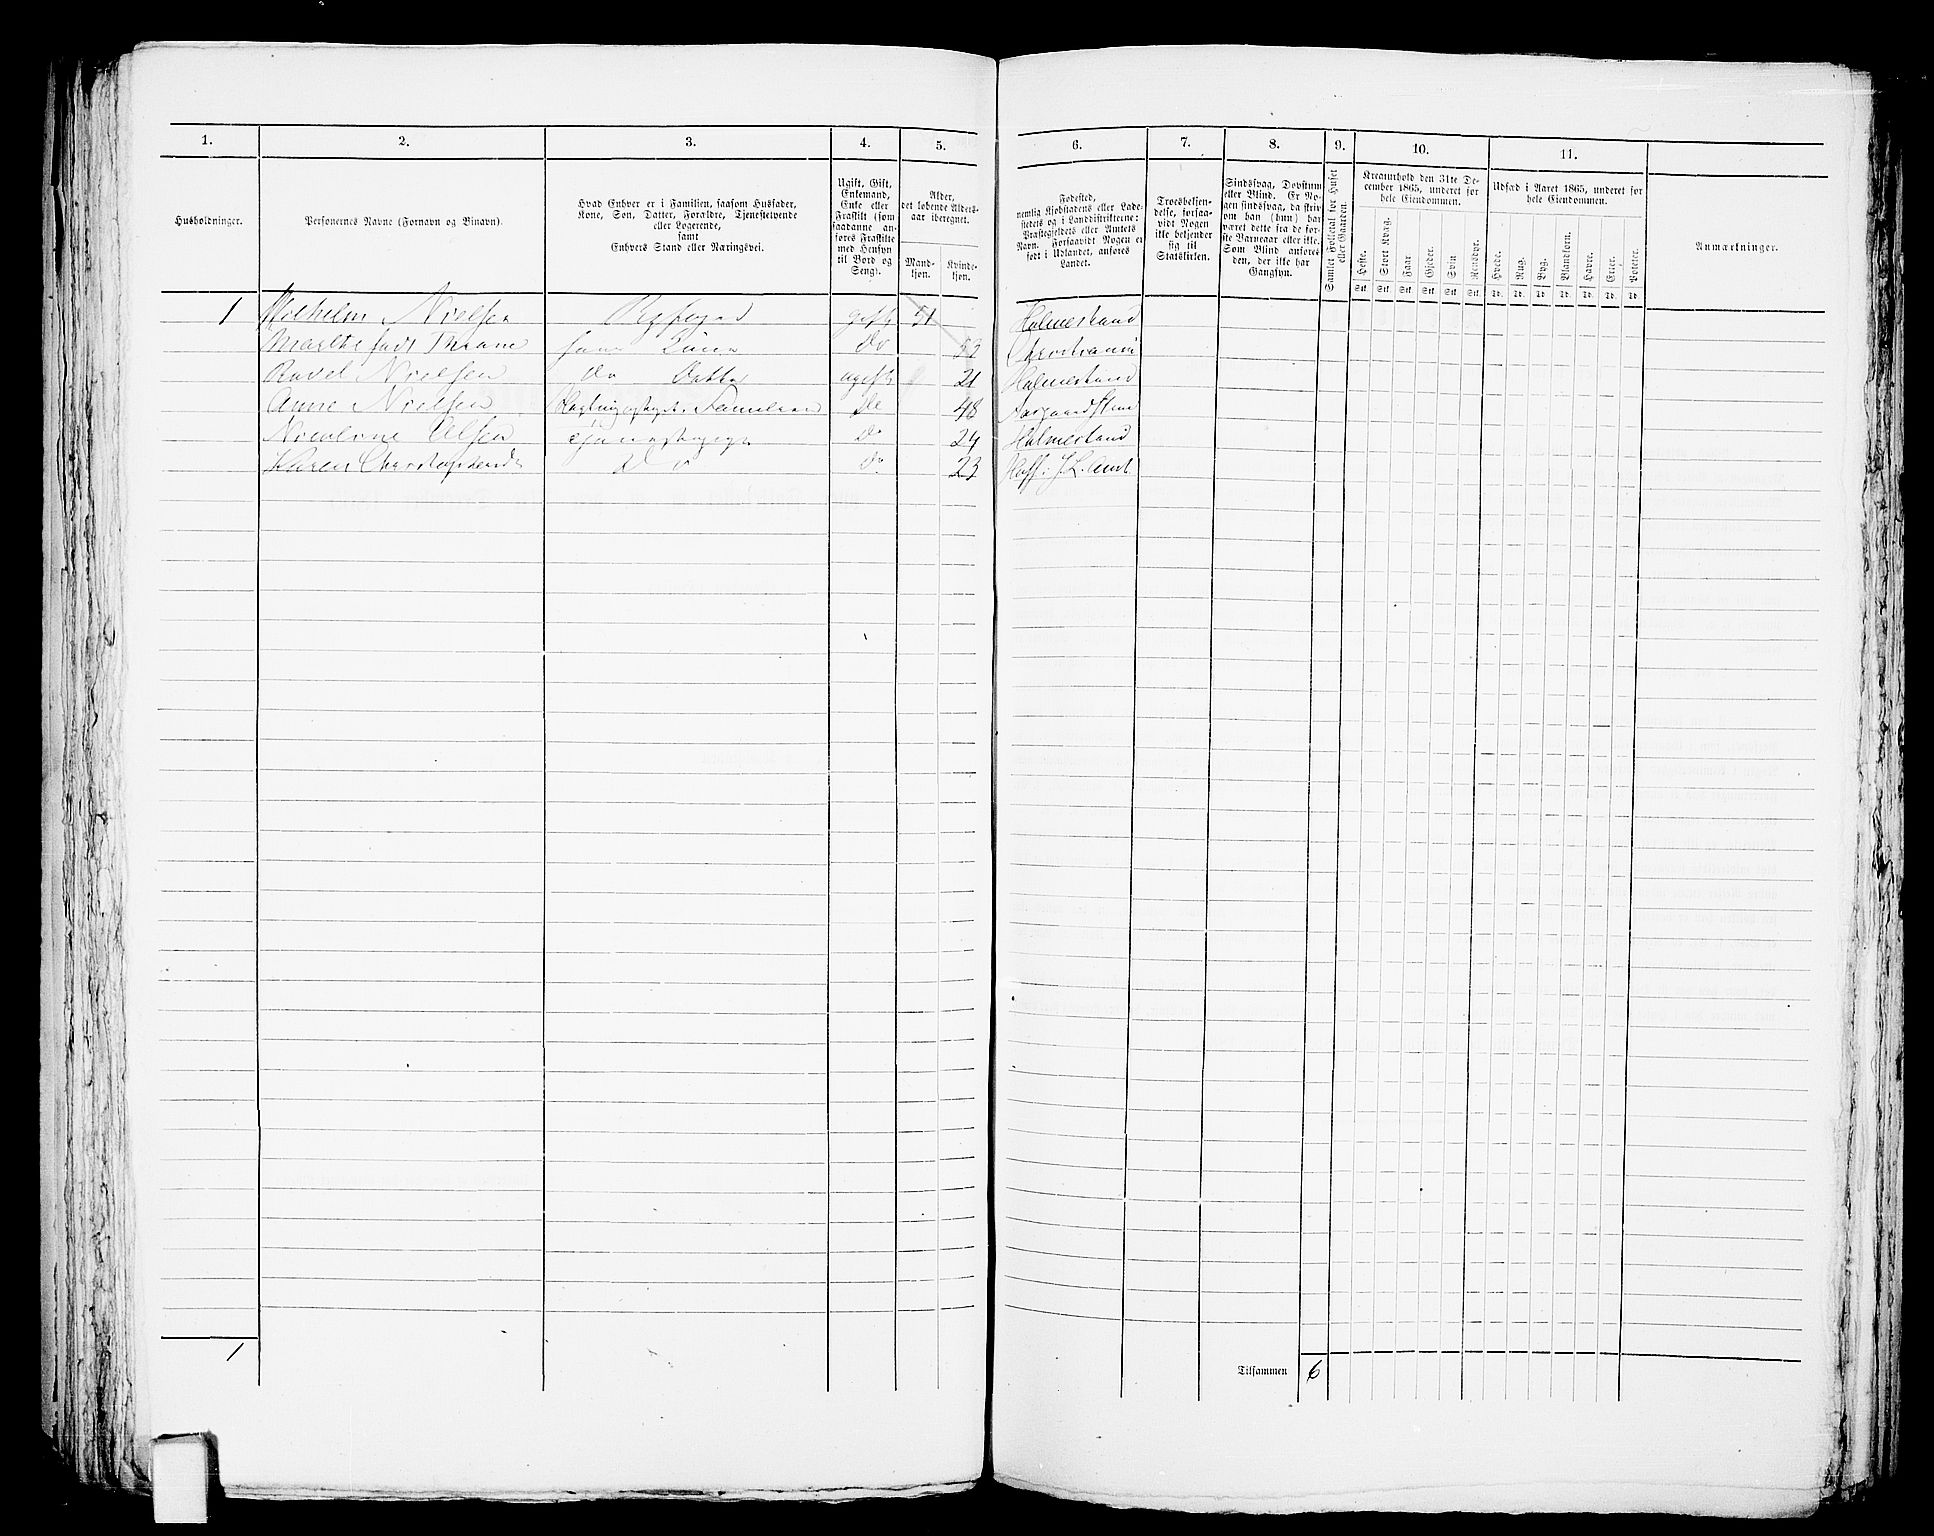 1. 2. 3. 4. 5. 6. 7. 8. 9. 10. 11.
Husholdninger.
Personernes Navne (Fornavn og Binavn).
Hvad Enhver er i Familien, saasom Husfader,
Kone, Søn, Datter, Forældre, Tjenestetyende
eller Logerende,
samt
Enhvers Stand eller Næringsvei.
Ugift, Gift,
Enkemand,
Enke eller
Fraskilt (som
saadanne an-
føres Fraskilte
med Hensyn
til Bord og
Seng).
Alder,
det løbende Alders-
aar iberegnet.
Mand-
kjøn.
Kvinde-
kjøn.
Fødested,
nemlig Kjøbstadens eller Lade-
stedets og i Landdistrikterne:
Præstegjeldets eller Amtets
Navn. Forsaavidt Nogen er
født i Udlandet, anføres
Landet.
Troesbekjen-
delse, forsaa-
vidt Nogen
ikke bekjender
sig til
Statskirken.
Sindssvag, Døvstum
eller Blind. Er No-
gen sindssvag, da skriv
om han (hun) har
været dette fra de før-
ste Barneaar eller ikke.
Som Blind anføres
den, der ikke har
Gangsyn.
Samlet Folketal for Huset
eller Gaarden.
Kreaturhold den 31te De-
cember 1865, underet for
hele Eiendommen.
Heste. Stort Kvæg. Faar Gjeder. Svin Rensdyr.
Stk. Stk. Stk. Stk. Stk. Stk.
Udsæd i Aaret 1865, underet for
hele Eiendommen.
Hvede. Rug. Byg. Blandkorn. Havre. Erter. Poteter.
Td. Td. Td. Td. Td. Td. Td.
Anmærkninger.
1 Wilhelm Nielsen gift 51 Holmestrand
Marthe født Thrane hans Kone Do 53 Christiania
Nielsen do Datter ugift 21 Holmestrand
Anne Nielsen 48
Nicoline Olsen Tjenestepige Do 24 Holmestrand
Karen Do Do 23 Hoff: J. L. Amt
1 Tilsammen 6